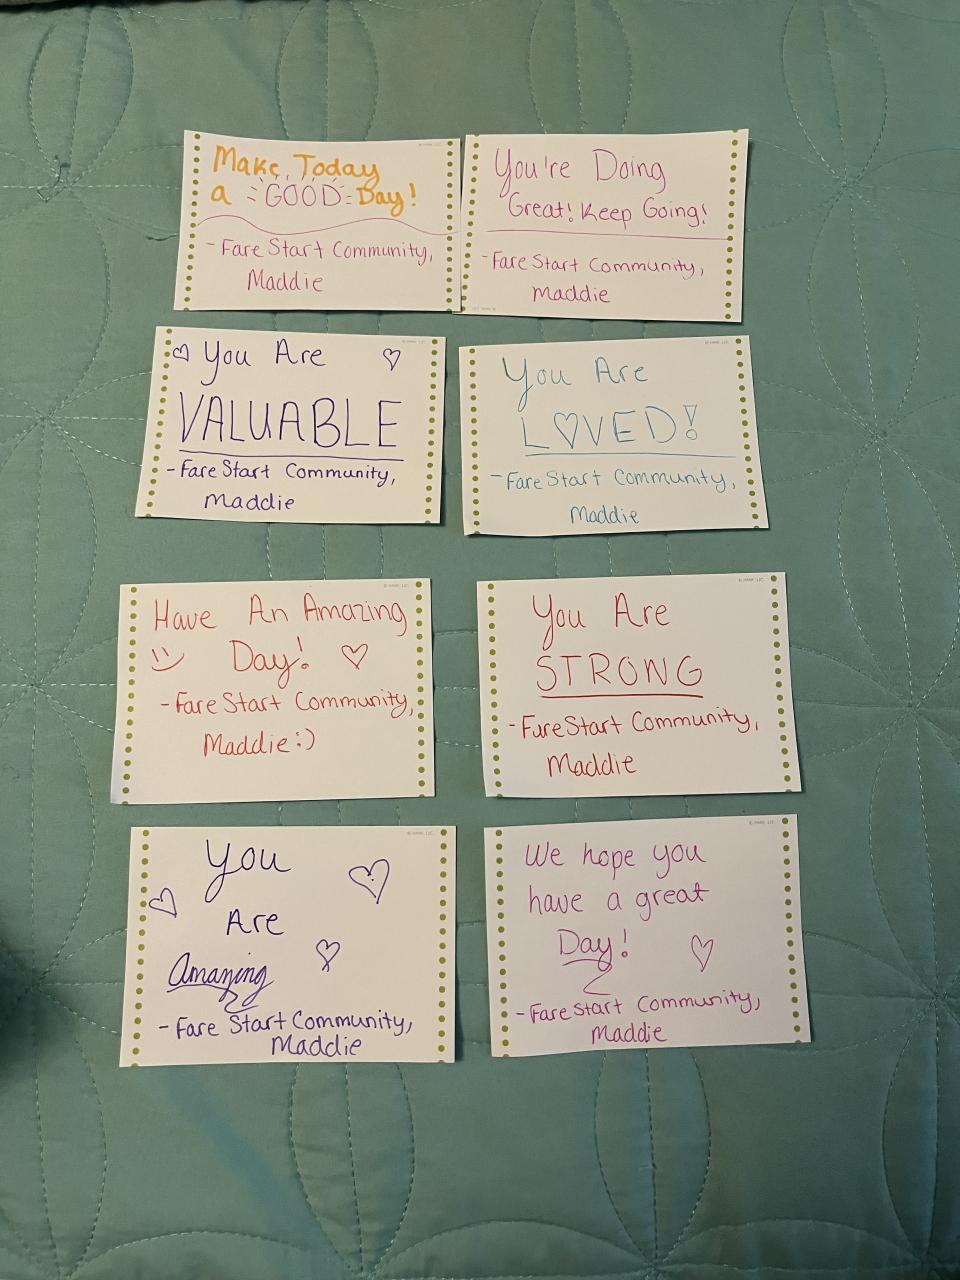 Make Today
a GOOD Day!
- Fare Start Community,
Maddie
You're Doing
Great! Keep Going!
- Fare Start Community,
Maddie
You Are
VALUABLE
- Fare Start Community,
Maddie
You Are
L♡VED!
- Fare Start Community,
Maddie
Have An Amazing
Day!
- Fare Start Community,
Maddie :)
You Are
STRONG
- Fare Start Community,
Maddie
You
Are
Amazing
- Fare Start Community,
Maddie
We hope you
have a great
Day!
- Fare Start Community,
Maddie